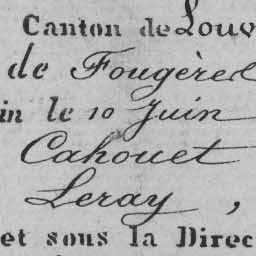 Canton de Louv
de Fougères
in le 10 Juin
Cahouet
Leray,
et sous la Direc